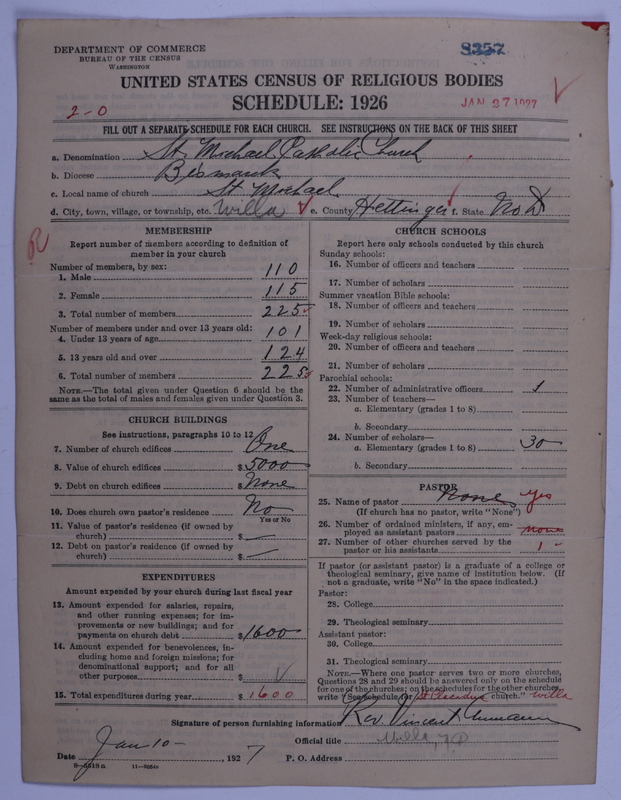 DEPARTMENT OF COMMERCE
BUREAU OF THE CENSUS
WASHINGTON
8357
UNITED STATES CENSUS OF RELIGIOUS BODIES
SCHEDULE: 1926
JAN 27 1927
2-0
FILL OUT A SEPARATE SCHEDULE FOR EACH CHURCH. SEE INSTRUCTIONS ON THE BACK OF THIS SHEET
a. Denomination St. Michael Catholic Church
b. Diocese Bismarck
c. Local name of church St. Michael
d. City, town, village, or township, etc. Willa e. County Hettinger f. State No. D
R
MEMBERSHIP
Report number of members according to definition of member in your church
Number of members, by sex:
1. Male 110
2. Female 115
3. Total number of members 225
Number of members under and over 13 years old:
4. Under 13 years of age 101
5. 13 years old and over 124
6. Total number of members 225
NOTE.—The total given under Question 6 should be the same as the total of males and females given under Question 3.
CHURCH BUILDINGS
See instructions, paragraphs 10 to 12
7. Number of church edifices One
8. Value of church edifices $ 5000
9. Debt on church edifices $ None
10. Does church own pastor's residence No
Yes or No
11. Value of pastor's residence (if owned by church) $ —
12. Debt on pastor's residence (if owned by church) $ —
EXPENDITURES
Amount expended by your church during last fiscal year
13. Amount expended for salaries, repairs, and other running expenses; for improvements or new buildings; and for payments on church debt $ 1600
14. Amount expended for benevolences, including home and foreign missions; for denominational support; and for all other purposes $
15. Total expenditures during year $ 1600
CHURCH SCHOOLS
Report here only schools conducted by this church
Sunday schools:
16. Number of officers and teachers
17. Number of scholars
Summer vacation Bible schools:
18. Number of officers and teachers
19. Number of scholars
Week-day religious schools:
20. Number of officers and teachers
21. Number of scholars
Parochial schools:
22. Number of administrative officers 1
23. Number of teachers—
a. Elementary (grades 1 to 8)
b. Secondary
24. Number of scholars—
a. Elementary (grades 1 to 8) 30
b. Secondary
PASTOR
25. Name of pastor None yes
(If church has no pastor, write "None")
26. Number of ordained ministers, if any, employed as assistant pastors none
27. Number of other churches served by the pastor or his assistants 1
If pastor (or assistant pastor) is a graduate of a college or theological seminary, give name of institution below. (If not a graduate, write "No" in the space indicated.)
Pastor:
28. College
29. Theological seminary
Assistant pastor:
30. College
31. Theological seminary
NOTE.—Where one pastor serves two or more churches, Questions 28 and 29 should be answered only on the schedule for one of the churches; on the schedules for the other churches, write "See schedule for St. church." Willa
Signature of person furnishing information Rev. Vincent
Official title
Date Jan 10 —, 1927 P. O. Address Willa, ND
8—5518a 11—9264a